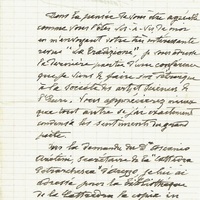 Dans la pensée de vous être agréable
comme vous l'êtes vis-à-vis de moi
en m'envoyant votre très intéressante
revue "La Tradizione", je vous adresse
la dernière partie d'une conférence
que je viens de faire sur Pétrarque
à la Société des arts et sciences de
l'Eure. Vous apprécierez mieux
que tout autre si j'ai exactement
condensé les sentiments du grand
poète.
Sur la demande du Dr
secrétaire de la
Petrarchesca d'Arezzo, je lui ai
adressé pour la Bibliothèque
de la la copie in